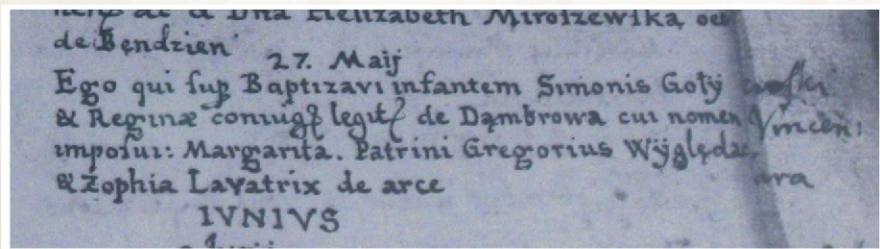 & Dna Helizabeth Mirofzewſka
de Bendzien
27. Maij
Ego qui ſup Baptizavi infantem Simonis Goły
& Reginæ coniug legit de Dąmbrowa cui nomen
impoſui: Margarita. Patrini Gregorius Wÿględa
& Zophia Lavatrix de arce
IVNIVS